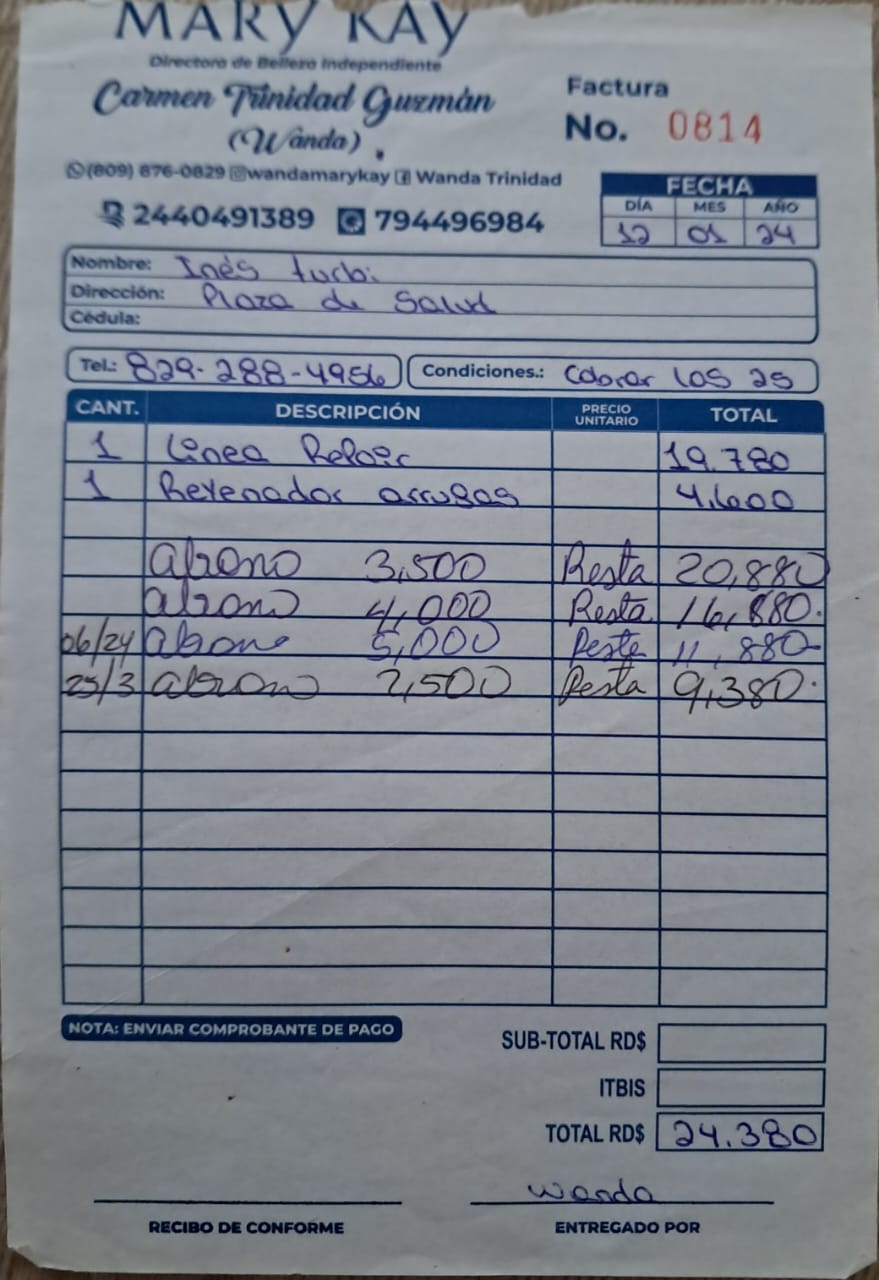 MARY KAY
Directora de Belleza Independiente
Carmen Trinidad Guzmán
(Wanda)
Factura
No. 0814
(809) 876-0829 wandamarykay Wanda Trinidad
2440491389 794496984
FECHA
DÍA MES AÑO
12 01 24
Nombre: Inés turbi
Dirección: Plaza de Salud
Cédula:
Tel.: 829-288-4956 Condiciones.: Cobrar los 25
CANT. DESCRIPCIÓN PRECIO UNITARIO TOTAL
1 Linea 19.780
1 arrugas 4,600
abono 3,500 Resta 20,880
abono 4,000 Resta 16,880.
06/24 abono 5,000 Resta 11,880
25/3 abono 2,500 Resta 9,380.
NOTA: ENVIAR COMPROBANTE DE PAGO
SUB-TOTAL RD$
ITBIS
TOTAL RD$ 24.380
Wanda
RECIBO DE CONFORME ENTREGADO POR